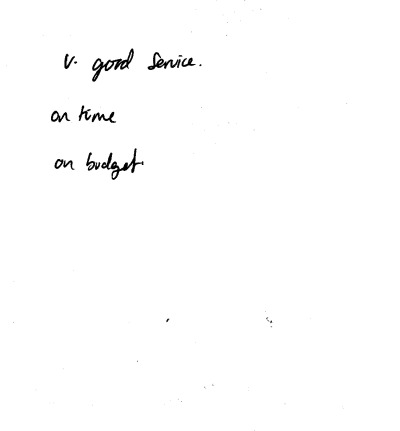 V. good Service.
on time
on budget.